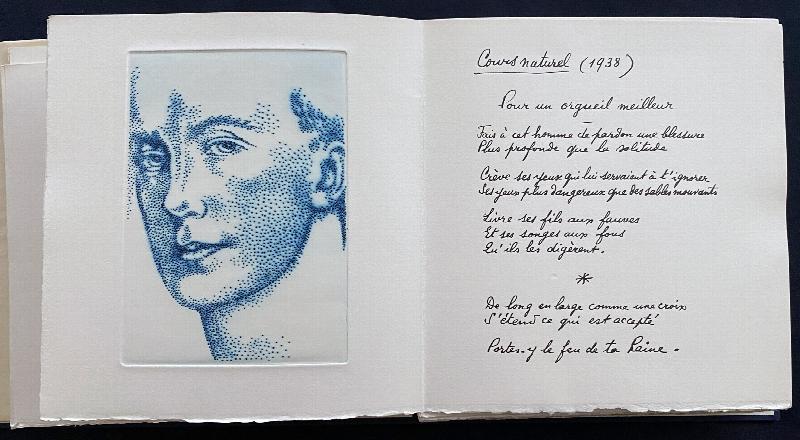 Cours naturel (1938)
Pour un orgueil meilleur
Fais à cet homme de pardon une blessure
Plus profonde que la solitude
Crève ses yeux qui lui servaient à t'ignorer
Ses yeux plus dangereux que des sables mouvants
Livre ses fils aux fauves
Et ses songes aux fous
Qu'ils les digèrent.
*
De long en large comme une croix
S'étend ce qui est accepté
Portes-y le feu de ta haine.